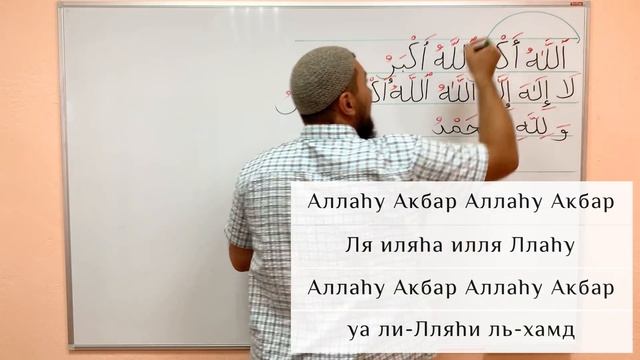 اَللَّهُ أَكْبَرْ اَللَّهُ أَكْبَرْ
لَا إِلَهَ إِلَّا اللَّهُ اَللَّهُ أَكْبَرْ
وَ لِلَّهِ الْحَمْدْ
Аллаhу Акбар Аллаhу Акбар
Ля иляhа илля Ллаhу
Аллаhу Акбар Аллаhу Акбар
уа ли-Лляhи ль-хамд